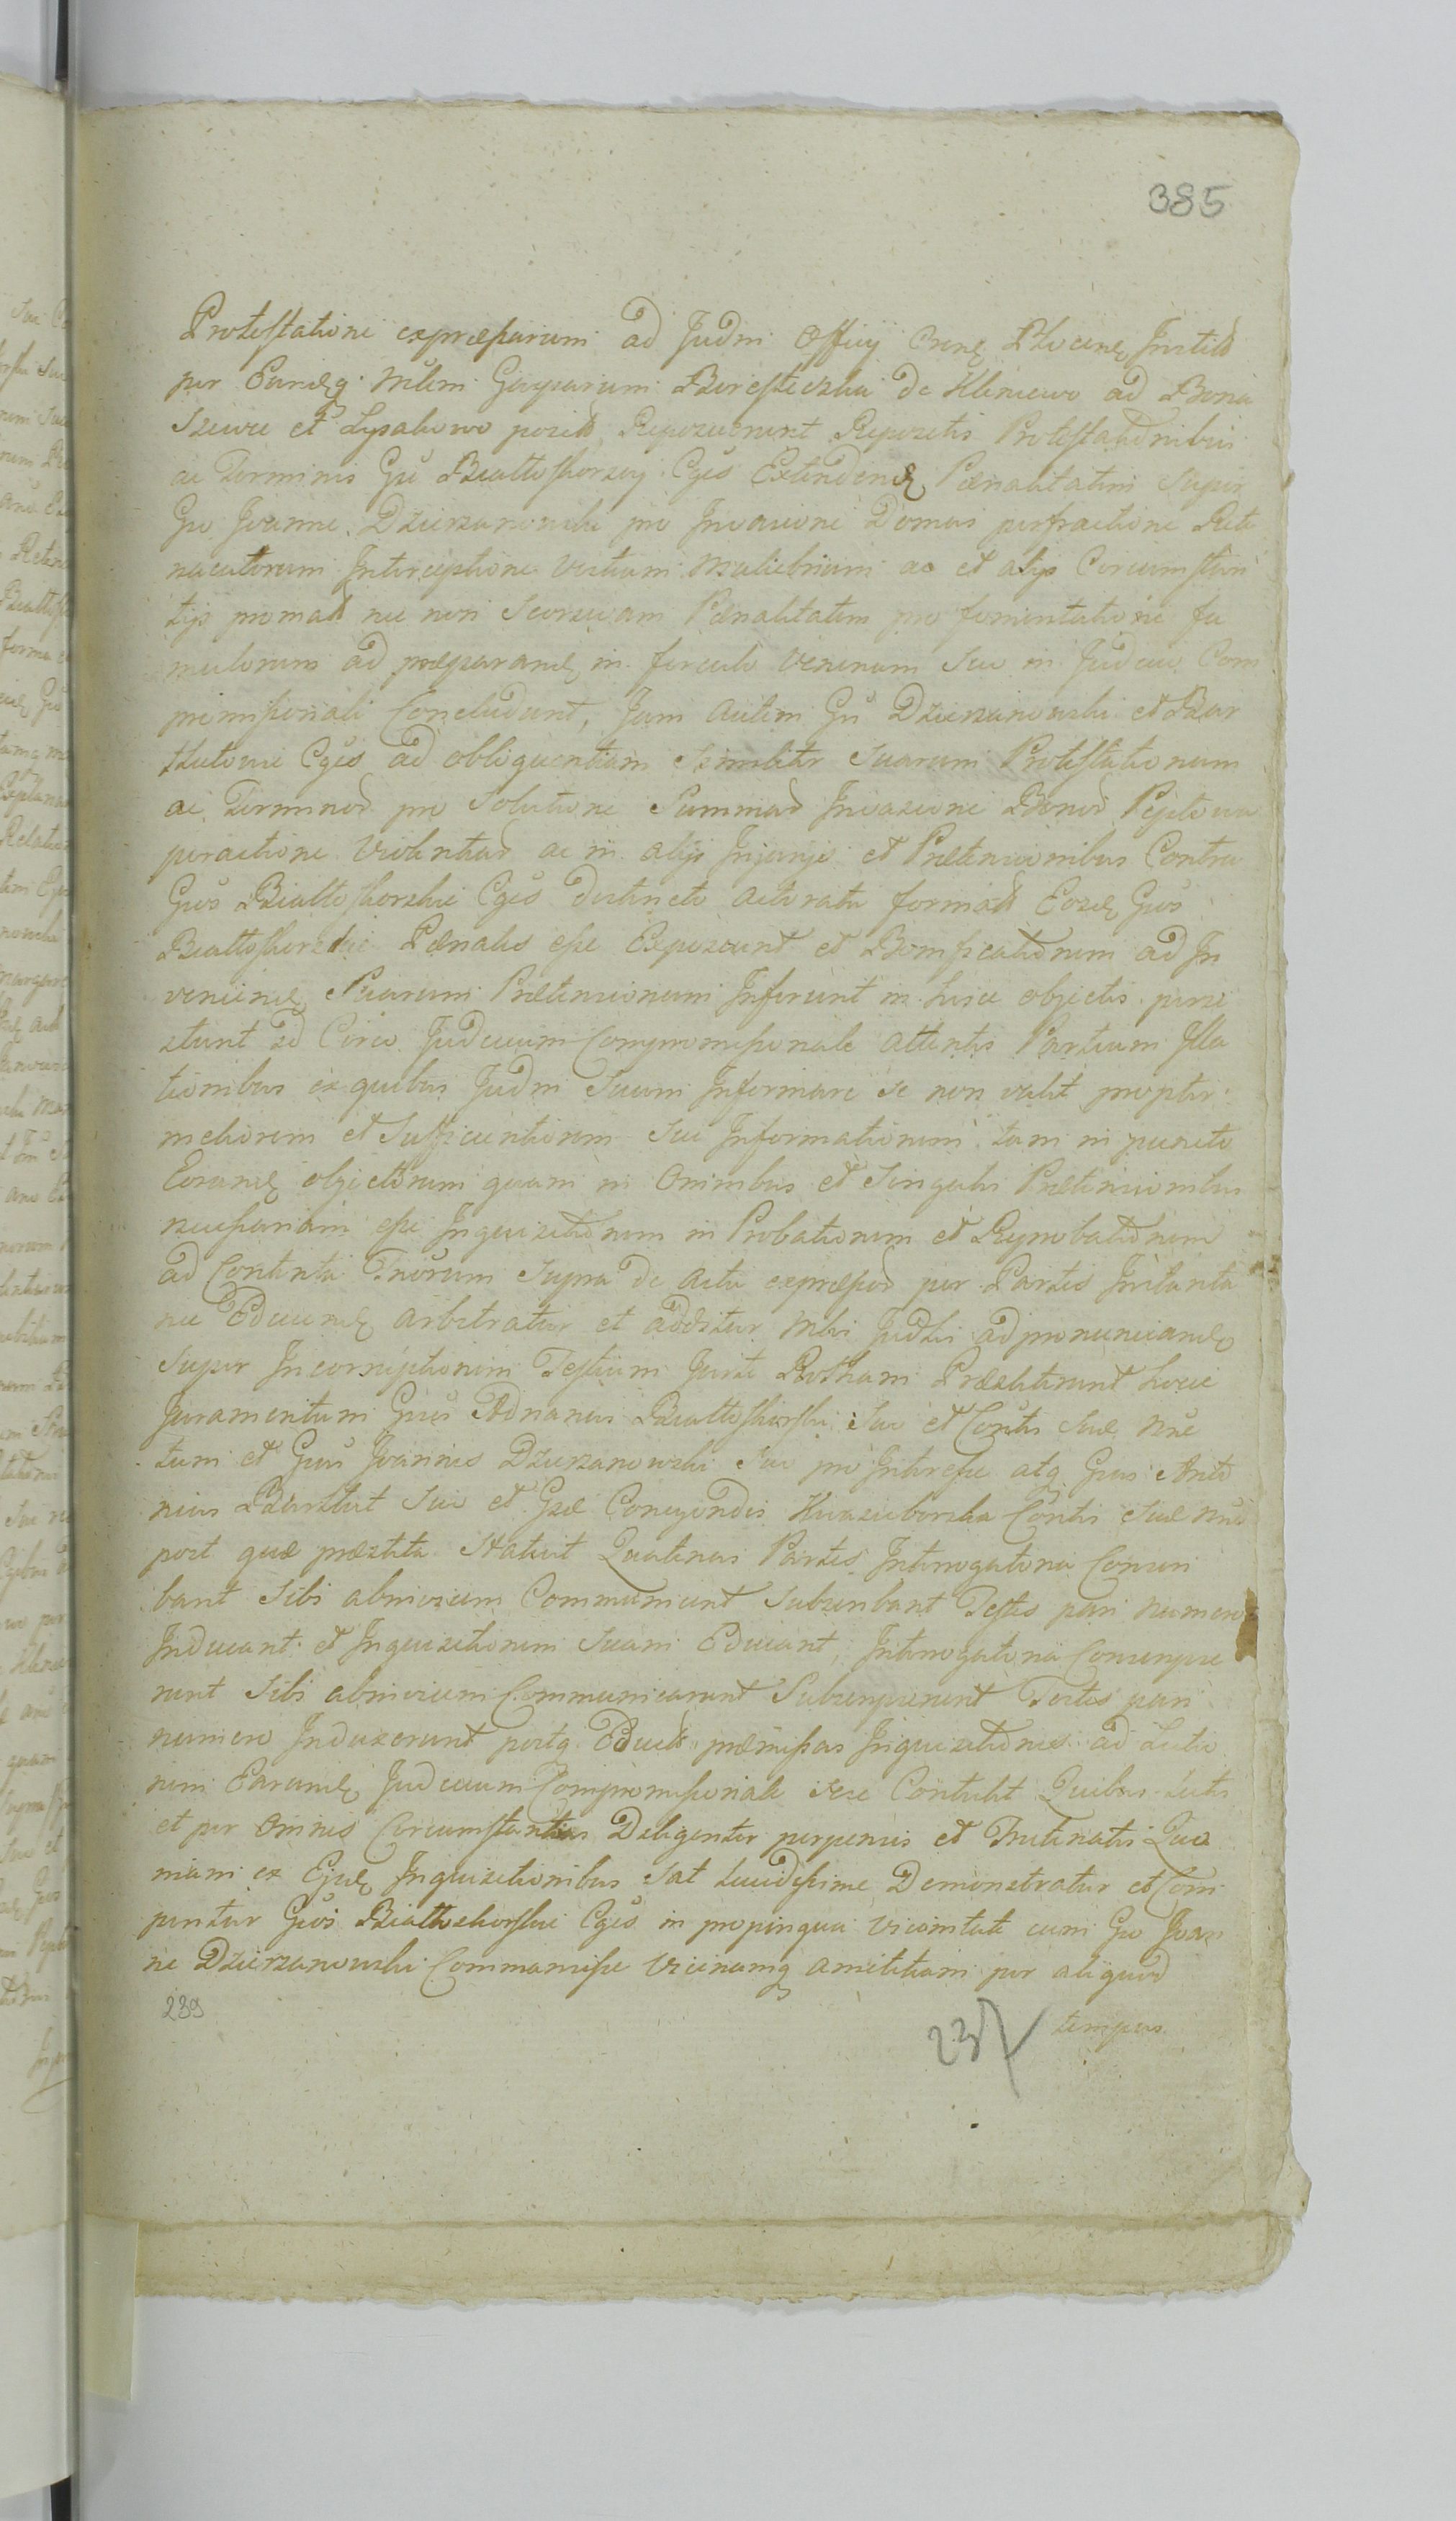 385
Protestatione expressarum ad Judm Officij Cnsne Plocene Institt
per Eundeq. Mtm Gasparum Beresteczki de Kliniewo ad Bona
Szewce et Lysakowo posit Reposuerunt Repositis Protestationibus
ac Terminis Gu Biallo Skorzey Cges Extendend Pænalitatem Super
Go Joanne Dzierzanowski pro Invasione Domus perfractione Reti
naculorum Interceptione Vestium Muliebrium ac et alijs Circumstan
tijs promatt nec non Seorsivam Pænalitatem pro fomentatione fa
mulorum ad præparand in ferculo Venenum Suu in Judicio Com
promissoriali Concludunt, Jam autem Gu Dzierzanowski et Bar
tlutowie Cges ad obloquentiam Similiter Suarum Protestationum
ac Terminor pro Solutione Summar Invasione Bonor
peractione Violentiar ac in alijs Injurijs et Prætensionibus Contra
Gnos Biallo Skorskie Cges distincto actoratu formatt Eosd Gnos
Biallo Skorskie Pænales esse Exposcunt et Bonificationem ad In
veniend Suarum Prætensionum Inferunt in Luice objectis persi
stunt Id Circo Judicium Compromissoriale attentis Partium Illa
tionibus ex quibus Judm Suum Informare se non valet propter
meliorem et Sufficientiorem Sui Informationem tam in puncto
Eorund objectorum quam in Omnibus et Singulis Prætensionibus
necessariam esse Inquisitionem in Probationem et Reprobationem
ad Contenta Tnorum Supra de Actu expressor per Partes Invitanta
nee Educend arbitratur et additur Mtri Judtri ad pronunciand
Super Incorruptionem Testium Juxta Rotham Præstiterunt Luice
Juramentum Gnus Adrianus Biallo Skorski Suo et Contis Suæ Nne
tum et Gnus Joannes Dzierzanowski Suo pro Interesse atq. Gnus Anto
nius Bartlut Suo et Gsæ Cunegondis Kwasieborska Contis Suæ Nne
post quæ præstita Statuit Quatenus Partes Interrogatoria Conscri
bant Sibi abinvicem Communicent Subscribant Testes pari numero
Inducant et Inquisitionem Suam Educant, Interrogatoria Conscripse
runt Sibi abinvicem Communicarunt Subscripserunt Testes pari
numero Induxerunt postq. Eduxtt præmissas Inquisitiones ad Lectio
nem Earumd Judicium Compromissoriale sese Contulit Quibus Lectis
et per Omnes Circumstantias Deligenter perpensis et Trutinatis Quo
niam ex Ejusd Inquisitionibus Sat Lucidissime Demonstratur et Com
peritur Gnos Biallo Skorskie Cges in propinqua Vicinitate cum Go Joan
ne Dzierzanowski Commansisse Vicinamq amicitiam per aliquod
tempus
239
237